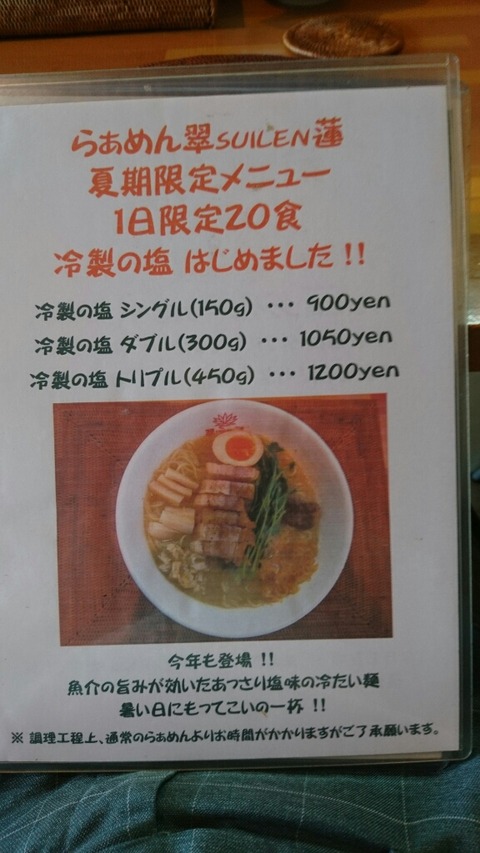 らぁめん翠SUILEN蓮
夏期限定メニュー
1日限定20食
冷製の塩 はじめました !!
冷製の塩 シングル(150g) ・・・ 900yen
冷製の塩 ダブル(300g) ・・・ 1050yen
冷製の塩 トリプル(450g) ・・・ 1200yen
今年も登場 !!
魚介の旨みが効いたあっさり塩味の冷たい麺
暑い日にもってこいの一杯 !!
※ 調理工程上、通常のらぁめんよりお時間がかかりますがご了承願います。